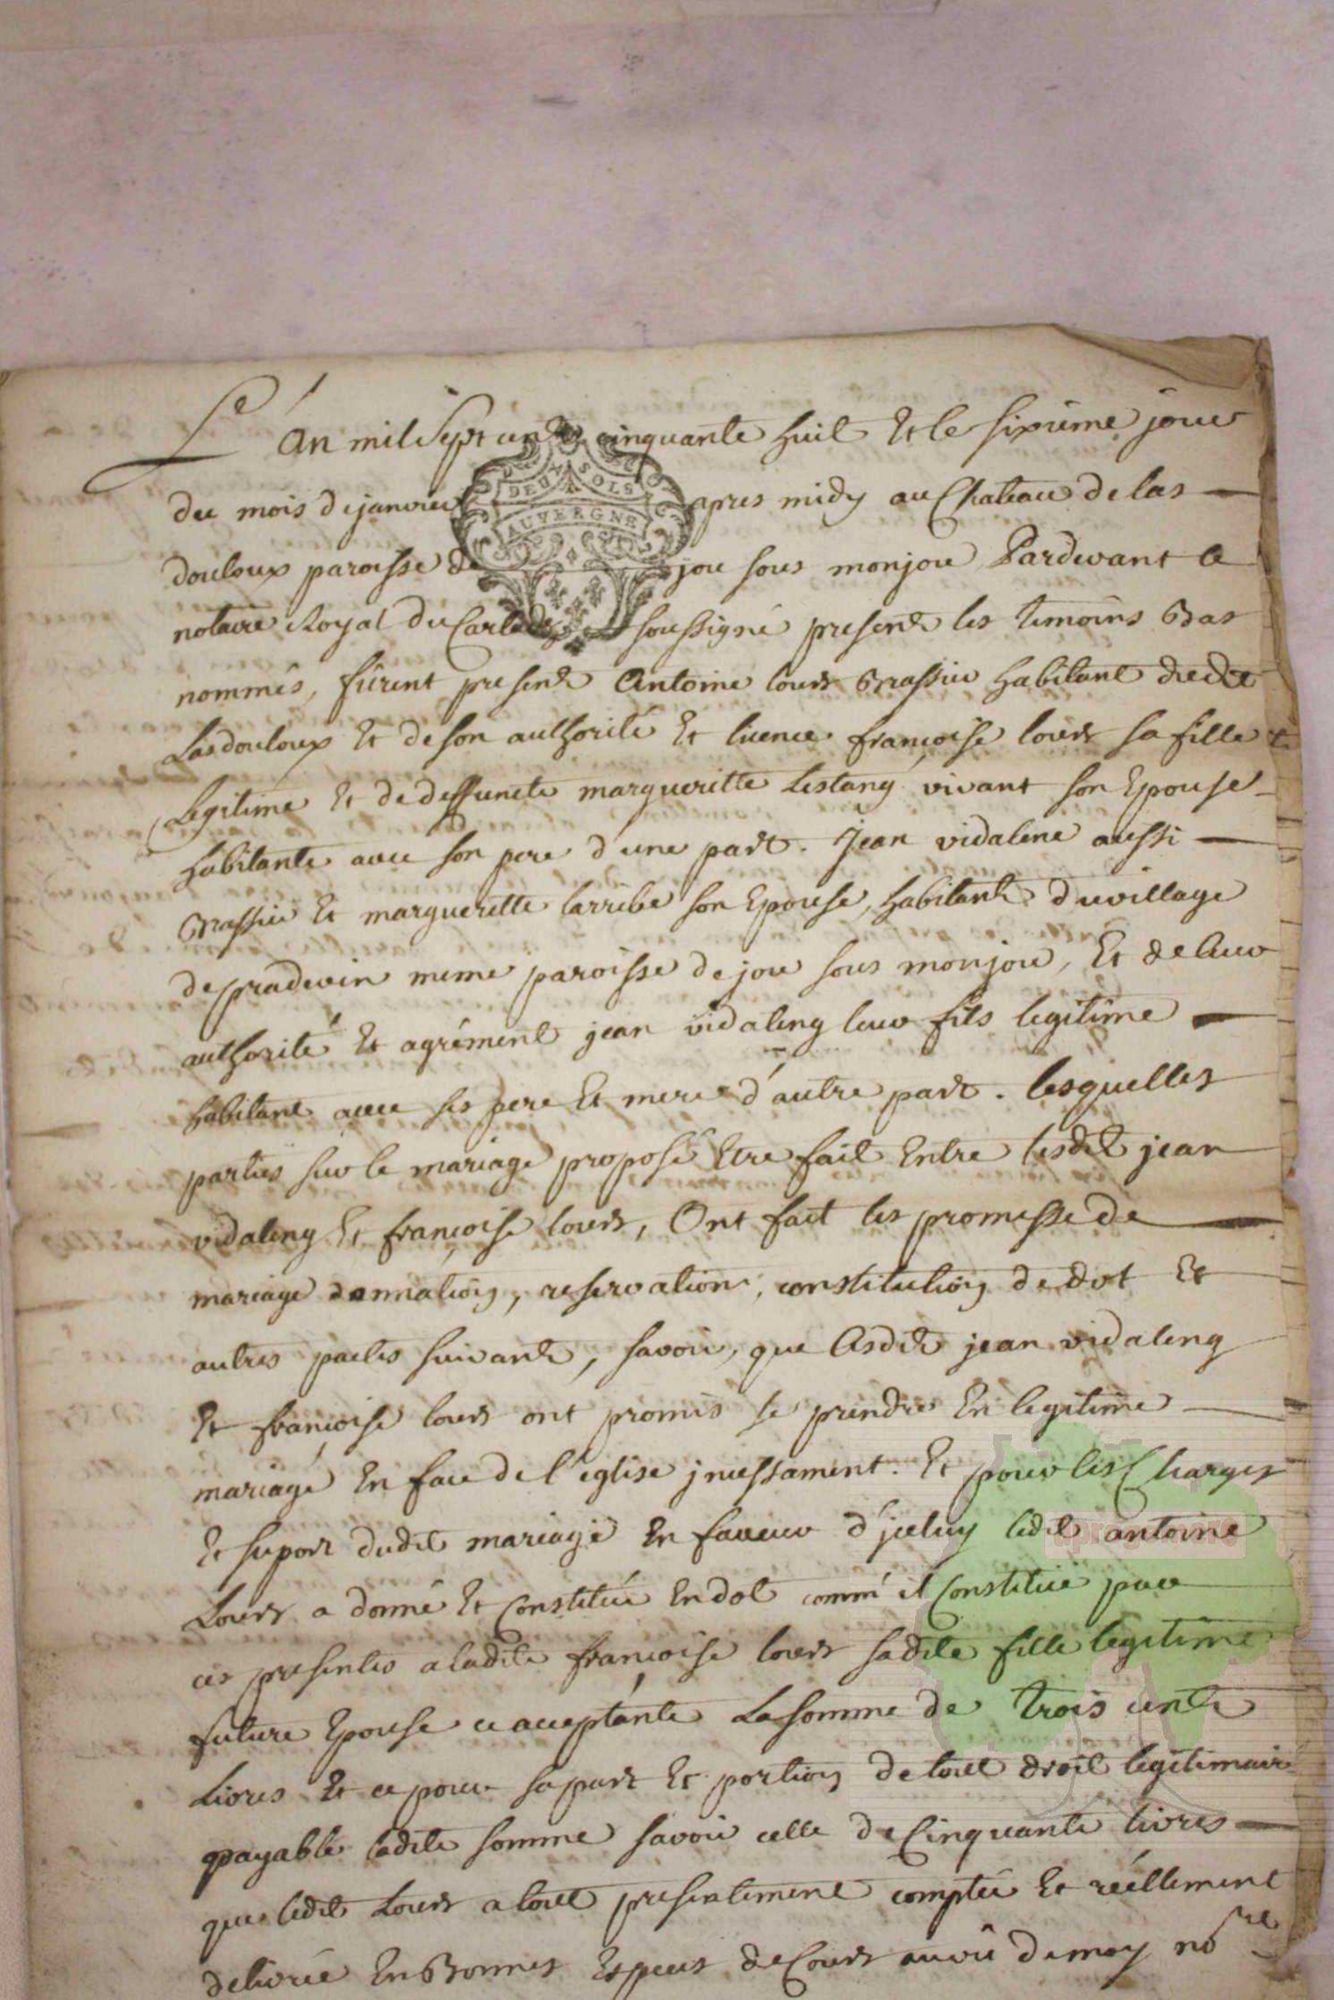 L'an mil sept cents cinquante huit Et le sixieme jour
du mois de janvier apres midy au Chateau de las
DEUX SOLS
AUVERGNE
douloux paroisse de jou sous monjou Pardevant le
notaire Royal du Carladez soussigné presents les temoins Bas
nommés, fûrent presents Antoine lours Brassier habitant dudit
Lasdouloux Et de son authorité Et licence francoise lours sa fille
Legitime Et de deffuncte margueritte Lestang vivant son Epouse
habitante avec son pere d'une part. Jean vidalenc aussi
Brassier Et margueritte larribe son Epouse, habitants du village
de pradevin meme paroisse de jou sous monjou, Et de leur
authorité Et agrément jean vidaleng leur fils legitime
habitant avec ses pere Et mere d'autre part. lesquelles
parties sur le mariage proposé Etre fait Entre lesdits jean
vidaleng Et francoise lours, Ont fait les promesse de
mariage donnation, reservation, constitution de dot Et
autres pactes suivants, savoir, que lesdits jean vidaleng
Et francoise lours ont promis se prendre En legitime
mariage En face de l'église jncessament. Et pour les Charges
Et suport dudit mariage En faveur d'jceluy ledit antoine
Lours a donné Et Constitué En dot comm'il Constitue par
ces presentes a ladite francoise lours sadite fille legitime
future Epouse ce acceptante La somme de trois cents
Livres Et ce pour sa part Et portion de tout droit legitimaire
payable ladite somme savoir celle de Cinquante livres
que ledit Lours a tout presentement comptée Et réellement
delivrée En Bonnes Especes de Cours au vû de moy no.re